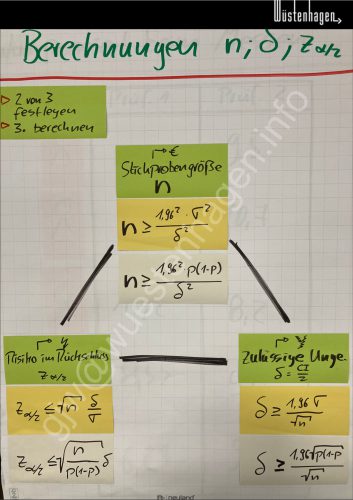 Wüstenhagen
Berechnungen n; δ; z α/2
▷ 2 von 3
festlegen
▷ 3. berechnen
→ €
Stichprobengröße
n
n ≥ 1,96² · σ² / δ²
n ≥ 1,96² · p(1-p) / δ²
Risiko im Rückschluss
z α/2
z α/2 ≤ √n · δ/σ
z α/2 ≤ √(n / p(1-p)) δ
Zulässige Unge.
δ = CI/2
δ ≥ 1,96 σ / √n
δ ≥ 1,96 √p(1-p) / √n
gjw@wuestenhagen.info
neuland